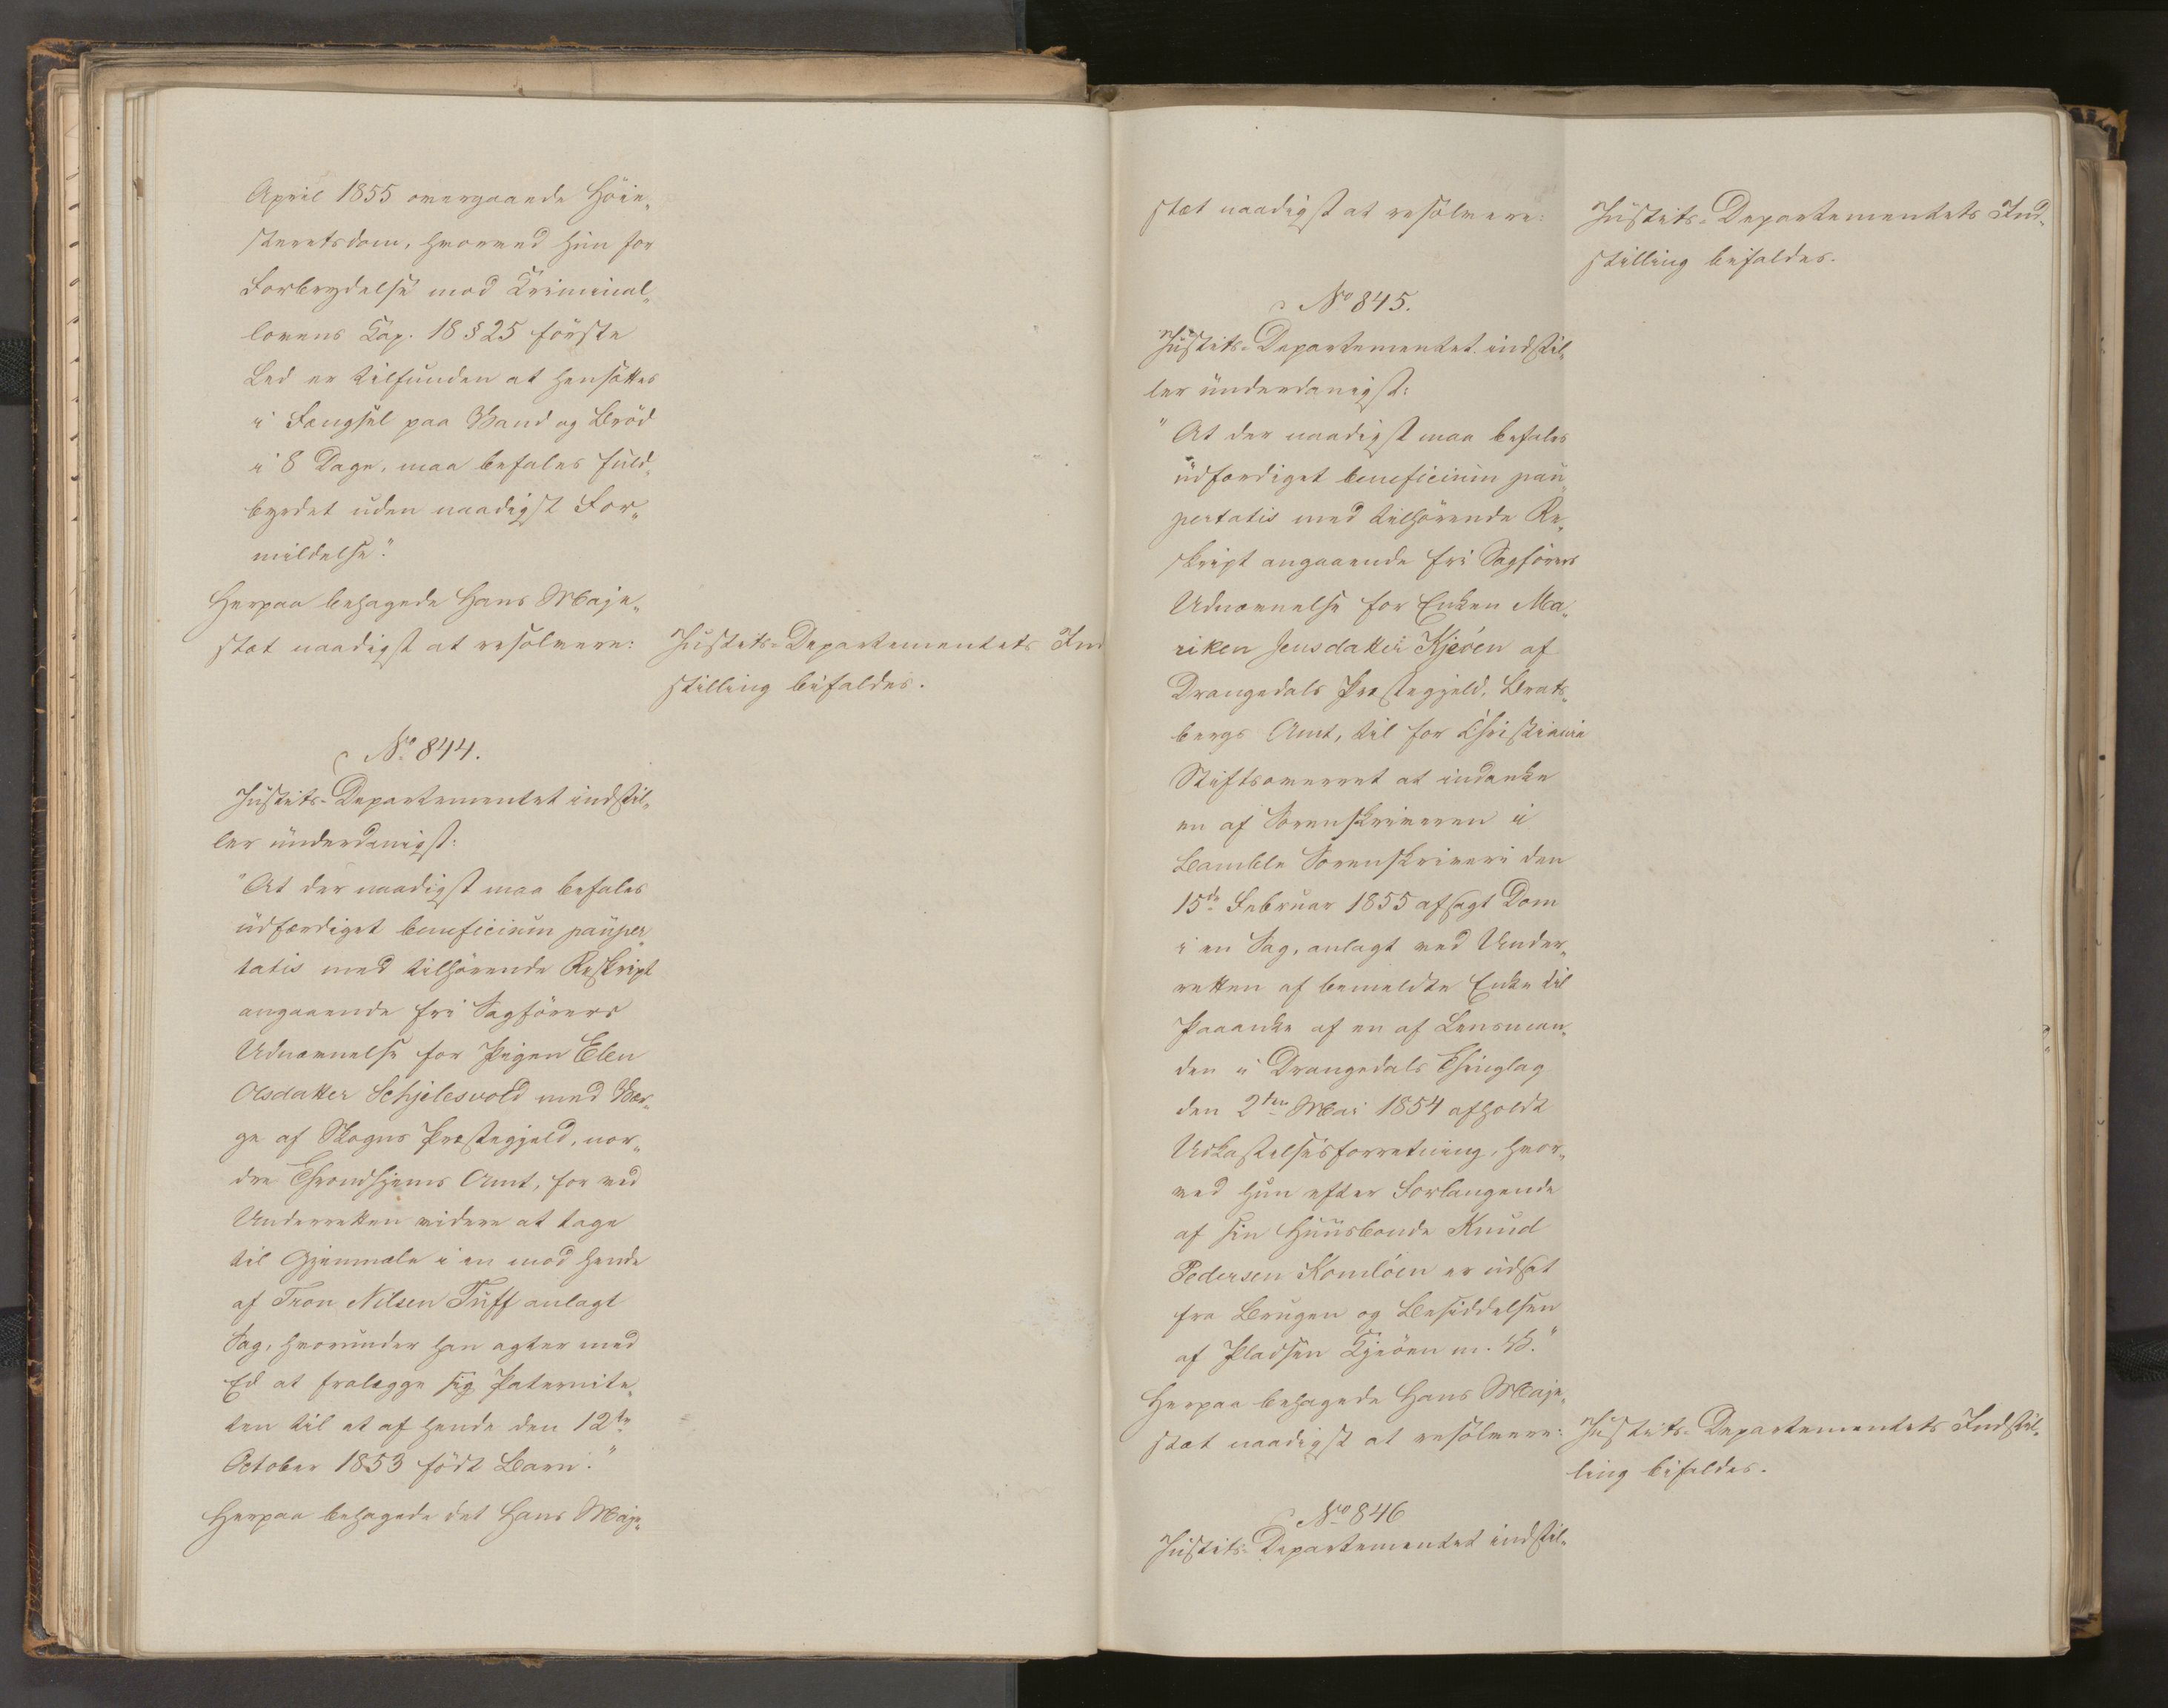 April 1855 overgaaende Höie„
steretsdom, hvorved hun for
Forbrydelse mod Kriminal„
lovens Kap. 18 § 25 förste
Led er tilfunden at hensættes
i Fængsel paa Vand og Bröd
i 8 Dage, maa befales fuld„
byrdet uden naadigst For„
mildelse."
Herpaa behagede Hans Maje„
stæt naadigst at resolvere:
Justits-Departementets Ind
stilling bifaldes.
No 844.
Justits-Departementet indstil„
ler underdanigst:
"At der naadigst maa befales
udfærdiget beneficium pauper„
tatis med tilhörende Reskript
angaaende fri Sagförers
Udnævnelse for Pigen Elen
Olsdatter Schjelesvold med Vær„
ge af Skogns Præstegjeld, nor„
dre Throndhjems Amt, for ved
Underretten videre at tage
til Gjenmæle i en mod hende
af Tron Nilsen Tuff anlagt
Sag, hvorunder han agter med
Ed at fralægge sig Paternite„
ten til et af hende den 12te
October 1853 födt Barn."
Herpaa behagede det Hans Maje„
stæt naadigst at resolvere:
Justits-Departementets Ind„
stilling bifaldes.
No 845.
Justits-Departementet indstil„
ler underdanigst:
"At der naadigst maa befales
udfærdiget beneficium pau„
pertatis med tilhörende Re„
skript angaaende fri Sagförers
Udnævnelse for Enken Ma„
riken Jensdatter Kjeöen af
Drangedals Præstegjeld, Brats„
bergs Amt, til for Christiania
Stiftsoverret at indanke
en af Sorenskriveren i
Bamble Sorenskriveri den
15de Februar 1855 afsagt Dom
i en Sag, anlagt ved Under„
retten af bemeldte Enke til
Paaanke af en af Lensman„
den i Drangedals Thinglag
den 2den Mai 1854 afholdt
Udkastelsesforretning, hvor„
ved hun efter Forlangende
af sin Huusbonde Knud
Pedersen Komlöen er udsat
fra Brugen og Besiddelsen
af Pladsen Kjeöen m. V."
Herpaa behagede Hans Maje„
stæt naadigst at resolvere:
Justits-Departementets Indstil„
ling bifaldes.
No 846
Justits-Departementet indstil„